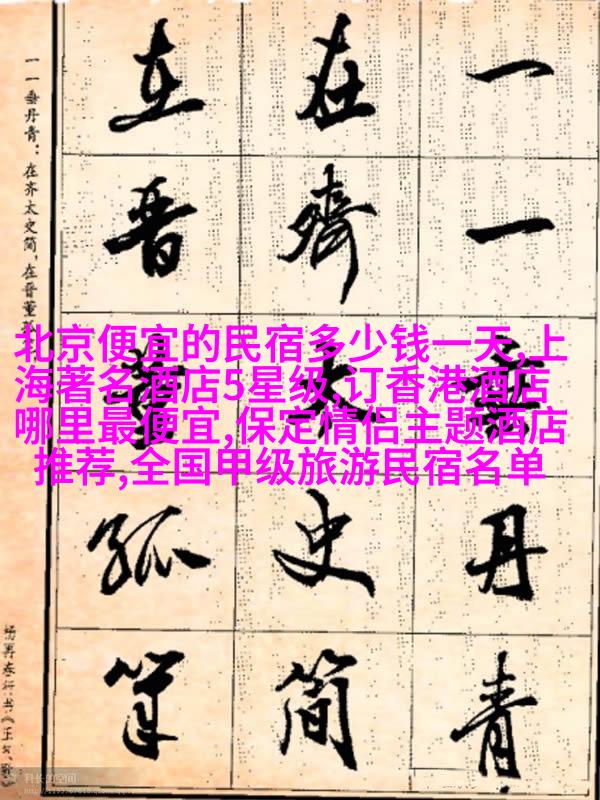 一一垂丹青
在齊太史简
在晋董狐笔
一一垂丹青：在齐太史简，在晋董
杨再春行书《正气
北京便宜的民宿多少钱一天,上
海著名酒店5星级,订香港酒店
哪里最便宜,保定情侣主题酒店
推荐,全国甲级旅游民宿名单
科长的空间